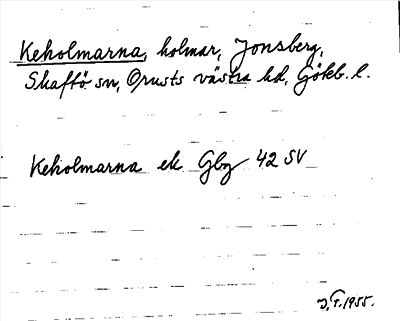 Keholmarna, holmar, Jonsberg,
Skaftö sn, Orusts västra hd, Göteb. l.
Keholmarna ek Gbg 42 SV
J.T. 1955.